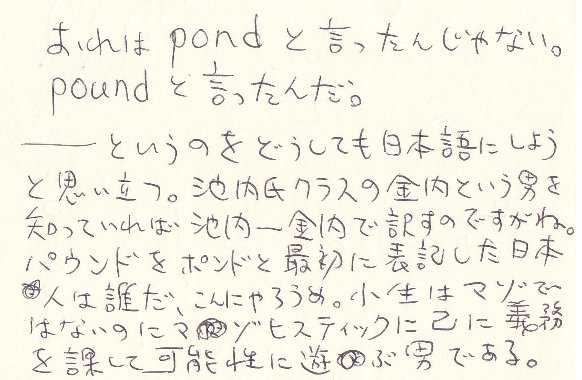 おれは pond と言ったんじゃない。
pound と言ったんだ。
―― というのをどうしても日本語にしよう
と思い立つ。池内氏クラスの金内という男を
知っていれば池内―金内で訳すのですがね。
パウンドをポンドと最初に表記した日本
人は誰だ、こんにゃろうめ。小生はマゾで
はないのにマゾヒスティックに己に義務
を課して可能性に遊ぶ男である。